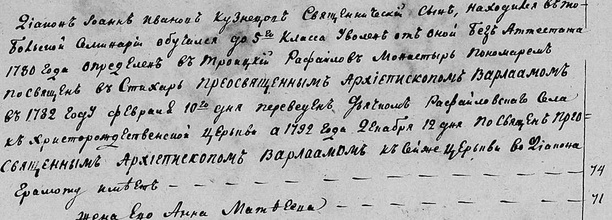 Діаконъ Іоаннъ Ивановъ Кузнецовъ Священническій Сынъ, находился въ то-
больской Семинаріи обучался до 5го Класса Уволенъ отъ оной безъ Аттестата
1780 Года опредѣленъ въ Троицкій Рафаиловъ Монастырь Пономаремъ
посвященъ въ Стихарь Преосвященнымъ Архіепископомъ Варлаамомъ
въ 1782 Году февраля 10го дня переведенъ дьячкомъ Рафайловскаго Села
къ Христорождественской Церькви а 1792 Года Декабря 12 дня посвященъ Прео-
священнымъ Архіепископомъ Варлаамомъ къ сейже Церькви во Діакона
Грамоту имѣетъ - - - - - - - - - - 74
Жена Его Анна Матвѣева - - - - - - - - 71